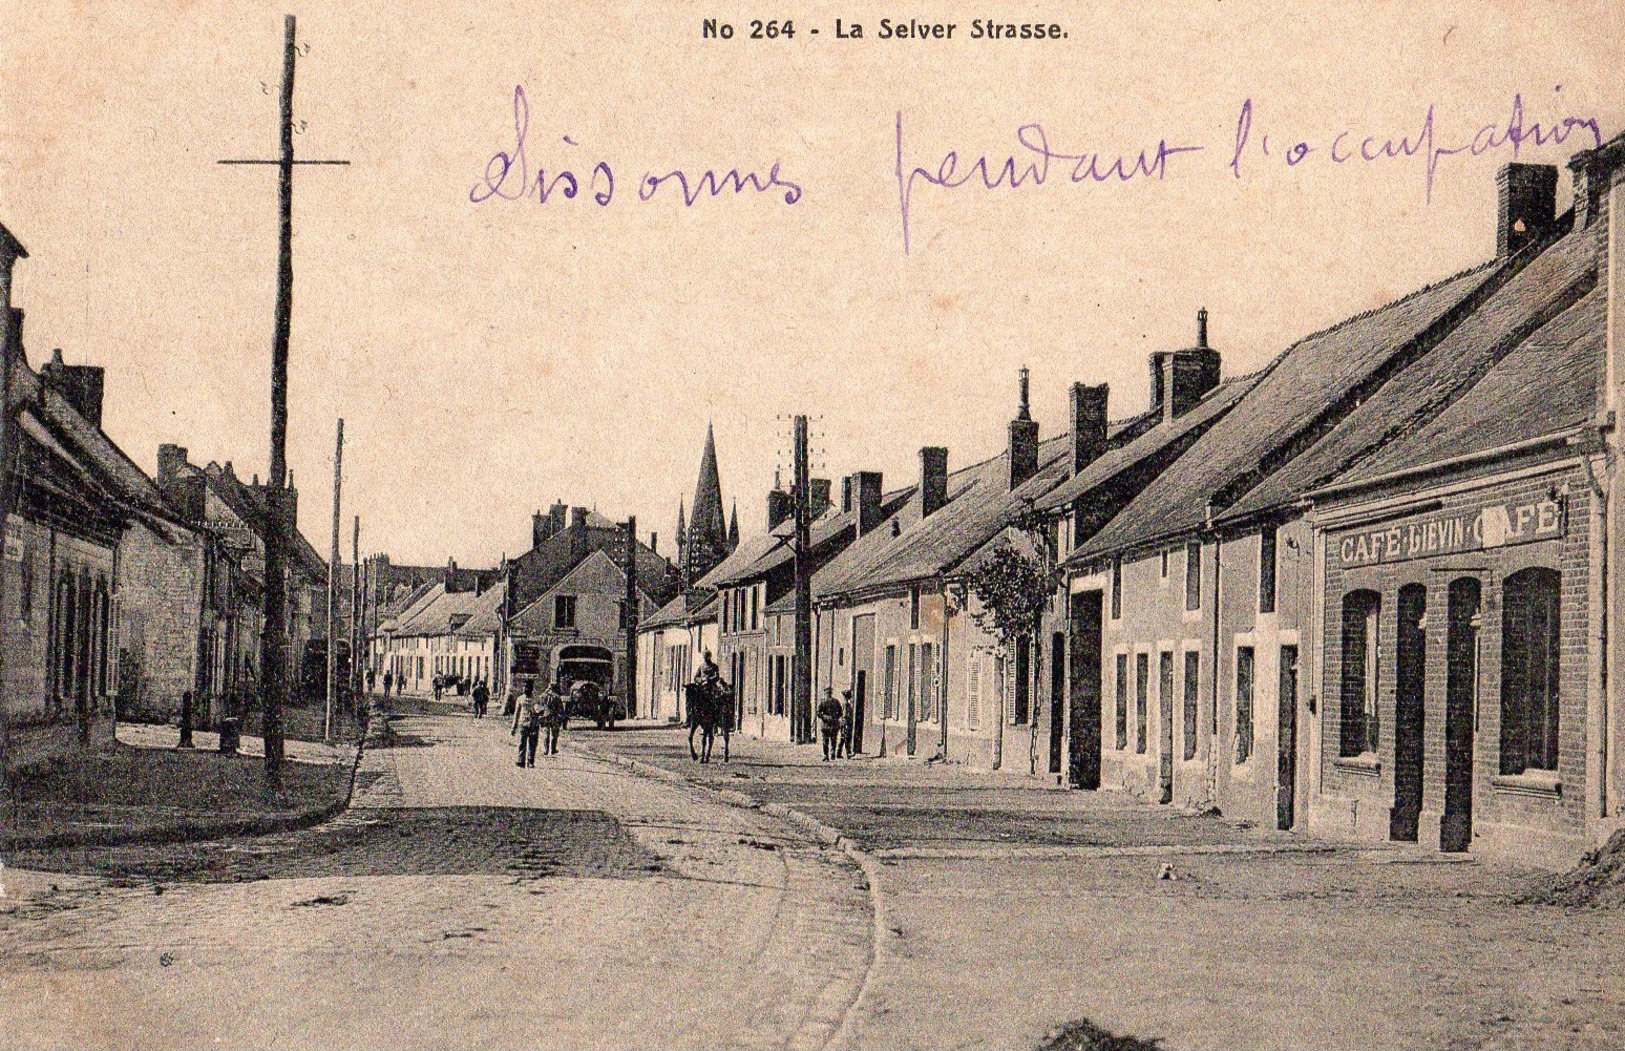 No 264 - La Selver Strasse.
Sissonnes pendant l'occupation
CAFÉ·LIÉVIN·CAFÉ